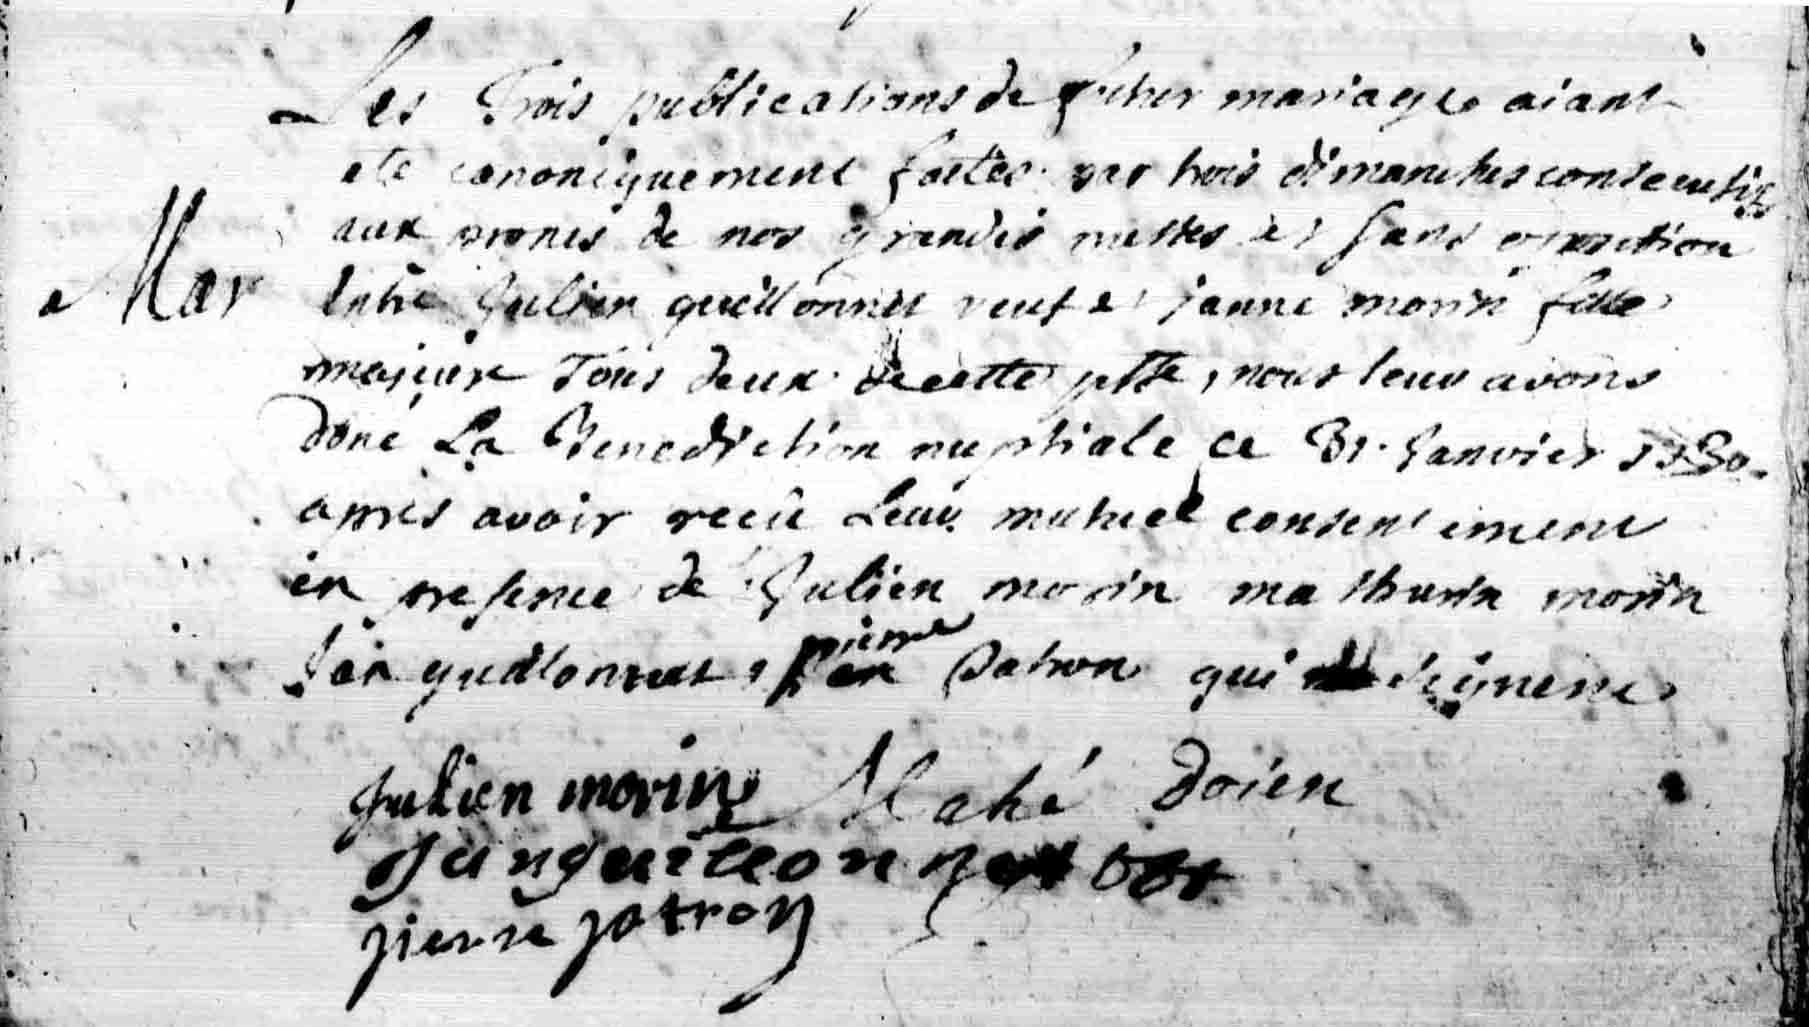 Les Trois publications de futur mariage aiant
ete canoniquement faites par trois dimanches consecutifs
aux prones de nos grandes messes et sans oposition
Mar
Entre Julien guillonnet veuf et janne morin fille
majeure Tous deux de cette psse, nous leur avons
doné La Benediction nuptiale ce 31. Janvier 1730.
apres avoir recû Leur mutuel consentement
en presence de Julien morin mathurin morin
Jan guillonnet, pierre patron qui signent
julien morin Mahé doien
Jan guilleonnet
pierre patron